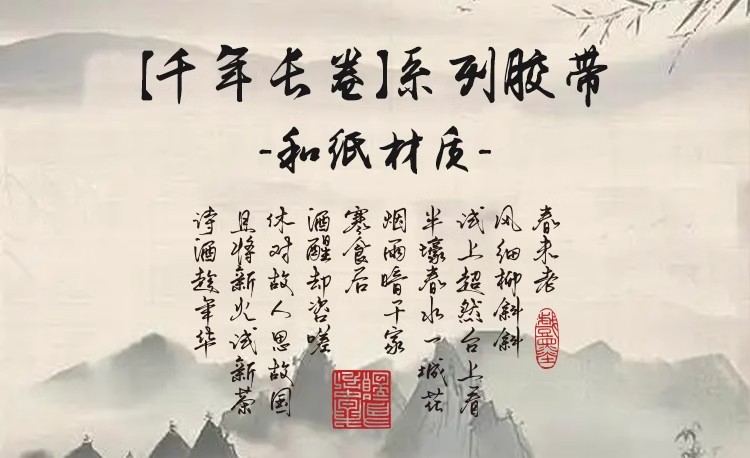 [千年长卷]系列胶带
-和纸材质-
春未老
风细柳斜斜
试上超然台上看
半壕春水一城花
烟雨暗千家
寒食后
酒醒却咨嗟
休对故人思故国
且将新火试新茶
诗酒趁年华